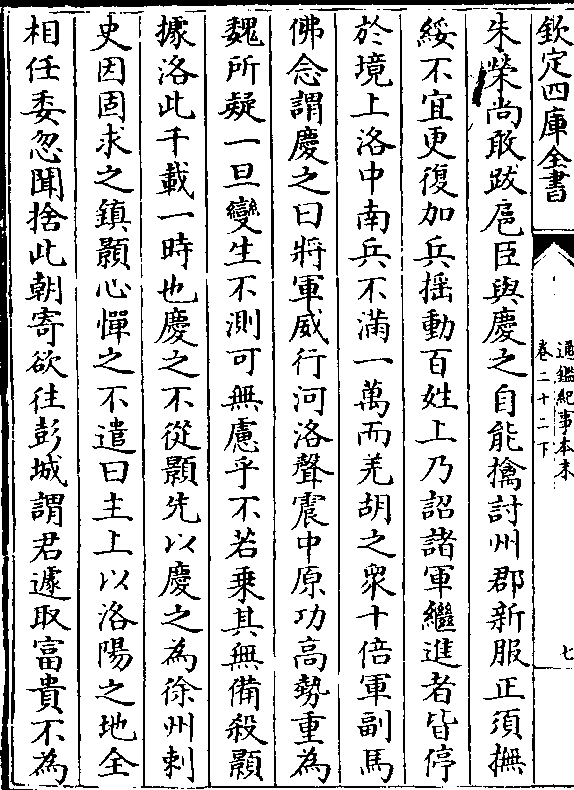 欽定四庫全書
通鑑紀事本末
卷二十二下
七
朱榮尚敢跋扈臣與慶之自能擒討州郡新服正須撫
綏不宜更復加兵揺動百姓上乃詔諸軍繼進者皆停
於境上洛中南兵不滿一萬而羌胡之衆十倍軍副馬
佛念謂慶之曰將軍威行河洛聲震中原功高勢重為
魏所疑一旦變生不測可無慮乎不若乗其無備殺顥
據洛此千載一時也慶之不從顥先以慶之為徐州刺
史因固求之鎮顥心憚之不遣曰主上以洛陽之地全
相任委忽聞捨此朝寄欲往彭城謂君遽取富貴不為